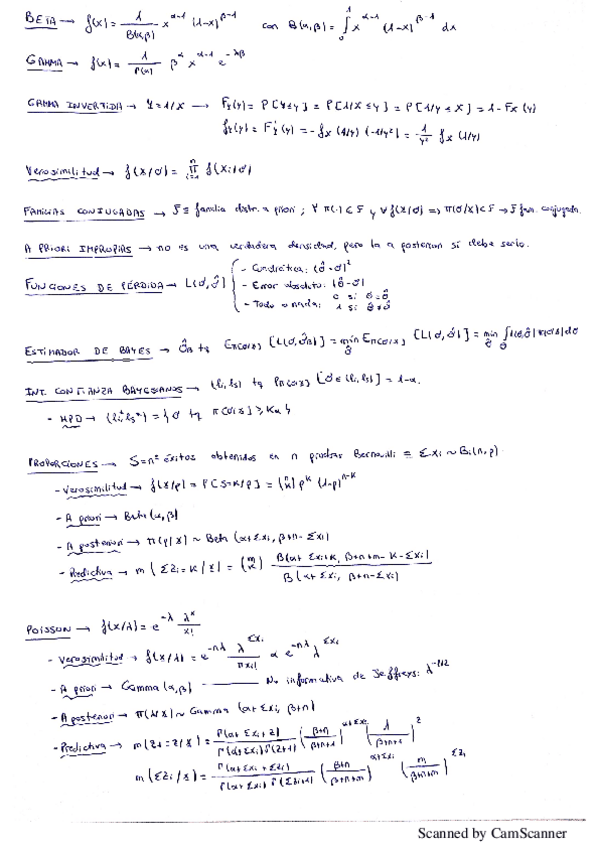 BETA → f(x) = 1/B(α,β) x^(α-1) (1-x)^(β-1) con B(α,β) = ∫₀¹ x^(α-1) (1-x)^(β-1) dx
GAMMA → f(x) = 1/Γ(α) β^α x^(α-1) e^(-λβ)
GAMMA INVERTIDA → Y=1/X → F_Y(y) = P[Y≤y] = P[1/X ≤ y] = P[1/y ≤ X] = 1 - F_X(y)
f_Y(y) = F'_Y(y) = -f_X(1/y) (-1/y²) = -1/y² f_X(1/y)
Verosimilitud → f(x/θ) = ∏ᵢ₌₁ⁿ f(xᵢ/θ)
FAMILIAS CONJUGADAS → F ≡ familia distr. a priori ; ∀ π(·) ∈ F y ∀ f(x/θ) ⇒ π(θ/x) ∈ F → F fam. conjugada.
A PRIORI IMPROPIAS → no es una verdadera densidad, pero la a posteriori sí debe serlo.
FUNCIONES DE PÉRDIDA → L(θ,θ̂)
- Cuadrática: (θ̂-θ)²
- Error absoluto: |θ̂-θ|
- Todo o nada: 0 si θ=θ̂
1 si θ≠θ̂
ESTIMADOR DE BAYES → θ̂_B tq E_π(θ/x) [L(θ,θ̂_B)] = min_θ̂ E_π(θ/x) [L(θ,θ̂)] = min_θ̂ ∫ L(θ,θ̂) π(θ/x) dθ
INT. CONFIANZA BAYESIANOS → (lᵢ, lₛ) tq P_π(θ/x) [θ ∈ (lᵢ, lₛ)] = 1-α.
- HPD → (lᵢ*, lₛ*) = {θ tq π(θ/x) ≥ Kα}
PROPORCIONES → S = nº éxitos obtenidos en n pruebas Bernouilli ≡ Σxᵢ ~ Bi(n,p)
- Verosimilitud → f(x/p) = P[S=K/p] = (n K) p^K (1-p)^(n-K)
- A priori → Beta (α,β)
- A posteriori → π(p/x) ~ Beta (α+Σxᵢ, β+n-Σxᵢ)
- Predictiva → m(Σzᵢ=K/x) = (m K) B(α+Σxᵢ+K, β+n+m-K-Σxᵢ) / B(α+Σxᵢ, β+n-Σxᵢ)
POISSON → f(x/λ) = e^(-λ) λ^x / x!
- Verosimilitud → f(x/λ) = e^(-nλ) λ^(Σxᵢ) / ∏xᵢ! α e^(-nλ) λ^(Σxᵢ)
- A priori → Gamma (α,β) —— No informativa de Jeffreys: λ^(-1/2)
- A posteriori → π(λ/x) ~ Gamma (α+Σxᵢ, β+n)
- Predictiva → m(z₁=z/x) = Γ(α+Σxᵢ+z) / Γ(α+Σxᵢ)Γ(z+1) (β+n / β+n+1)^(α+Σxᵢ) (1 / β+n+1)^z
m(Σzᵢ/x) = Γ(α+Σxᵢ+Σzᵢ) / Γ(α+Σxᵢ) Γ(Σzᵢ+1) (β+n / β+n+m)^(α+Σxᵢ) (m / β+n+m)^(Σzᵢ)
Scanned by CamScanner